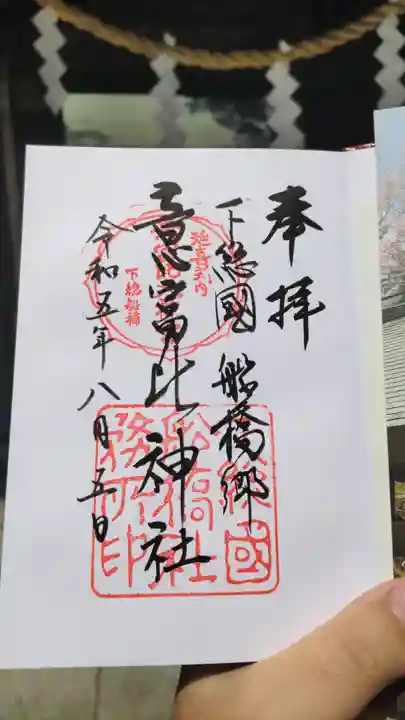 奉拝
下総國 船橋郷
意富比神社
令和五年八月五日
延喜式内
下総船橋